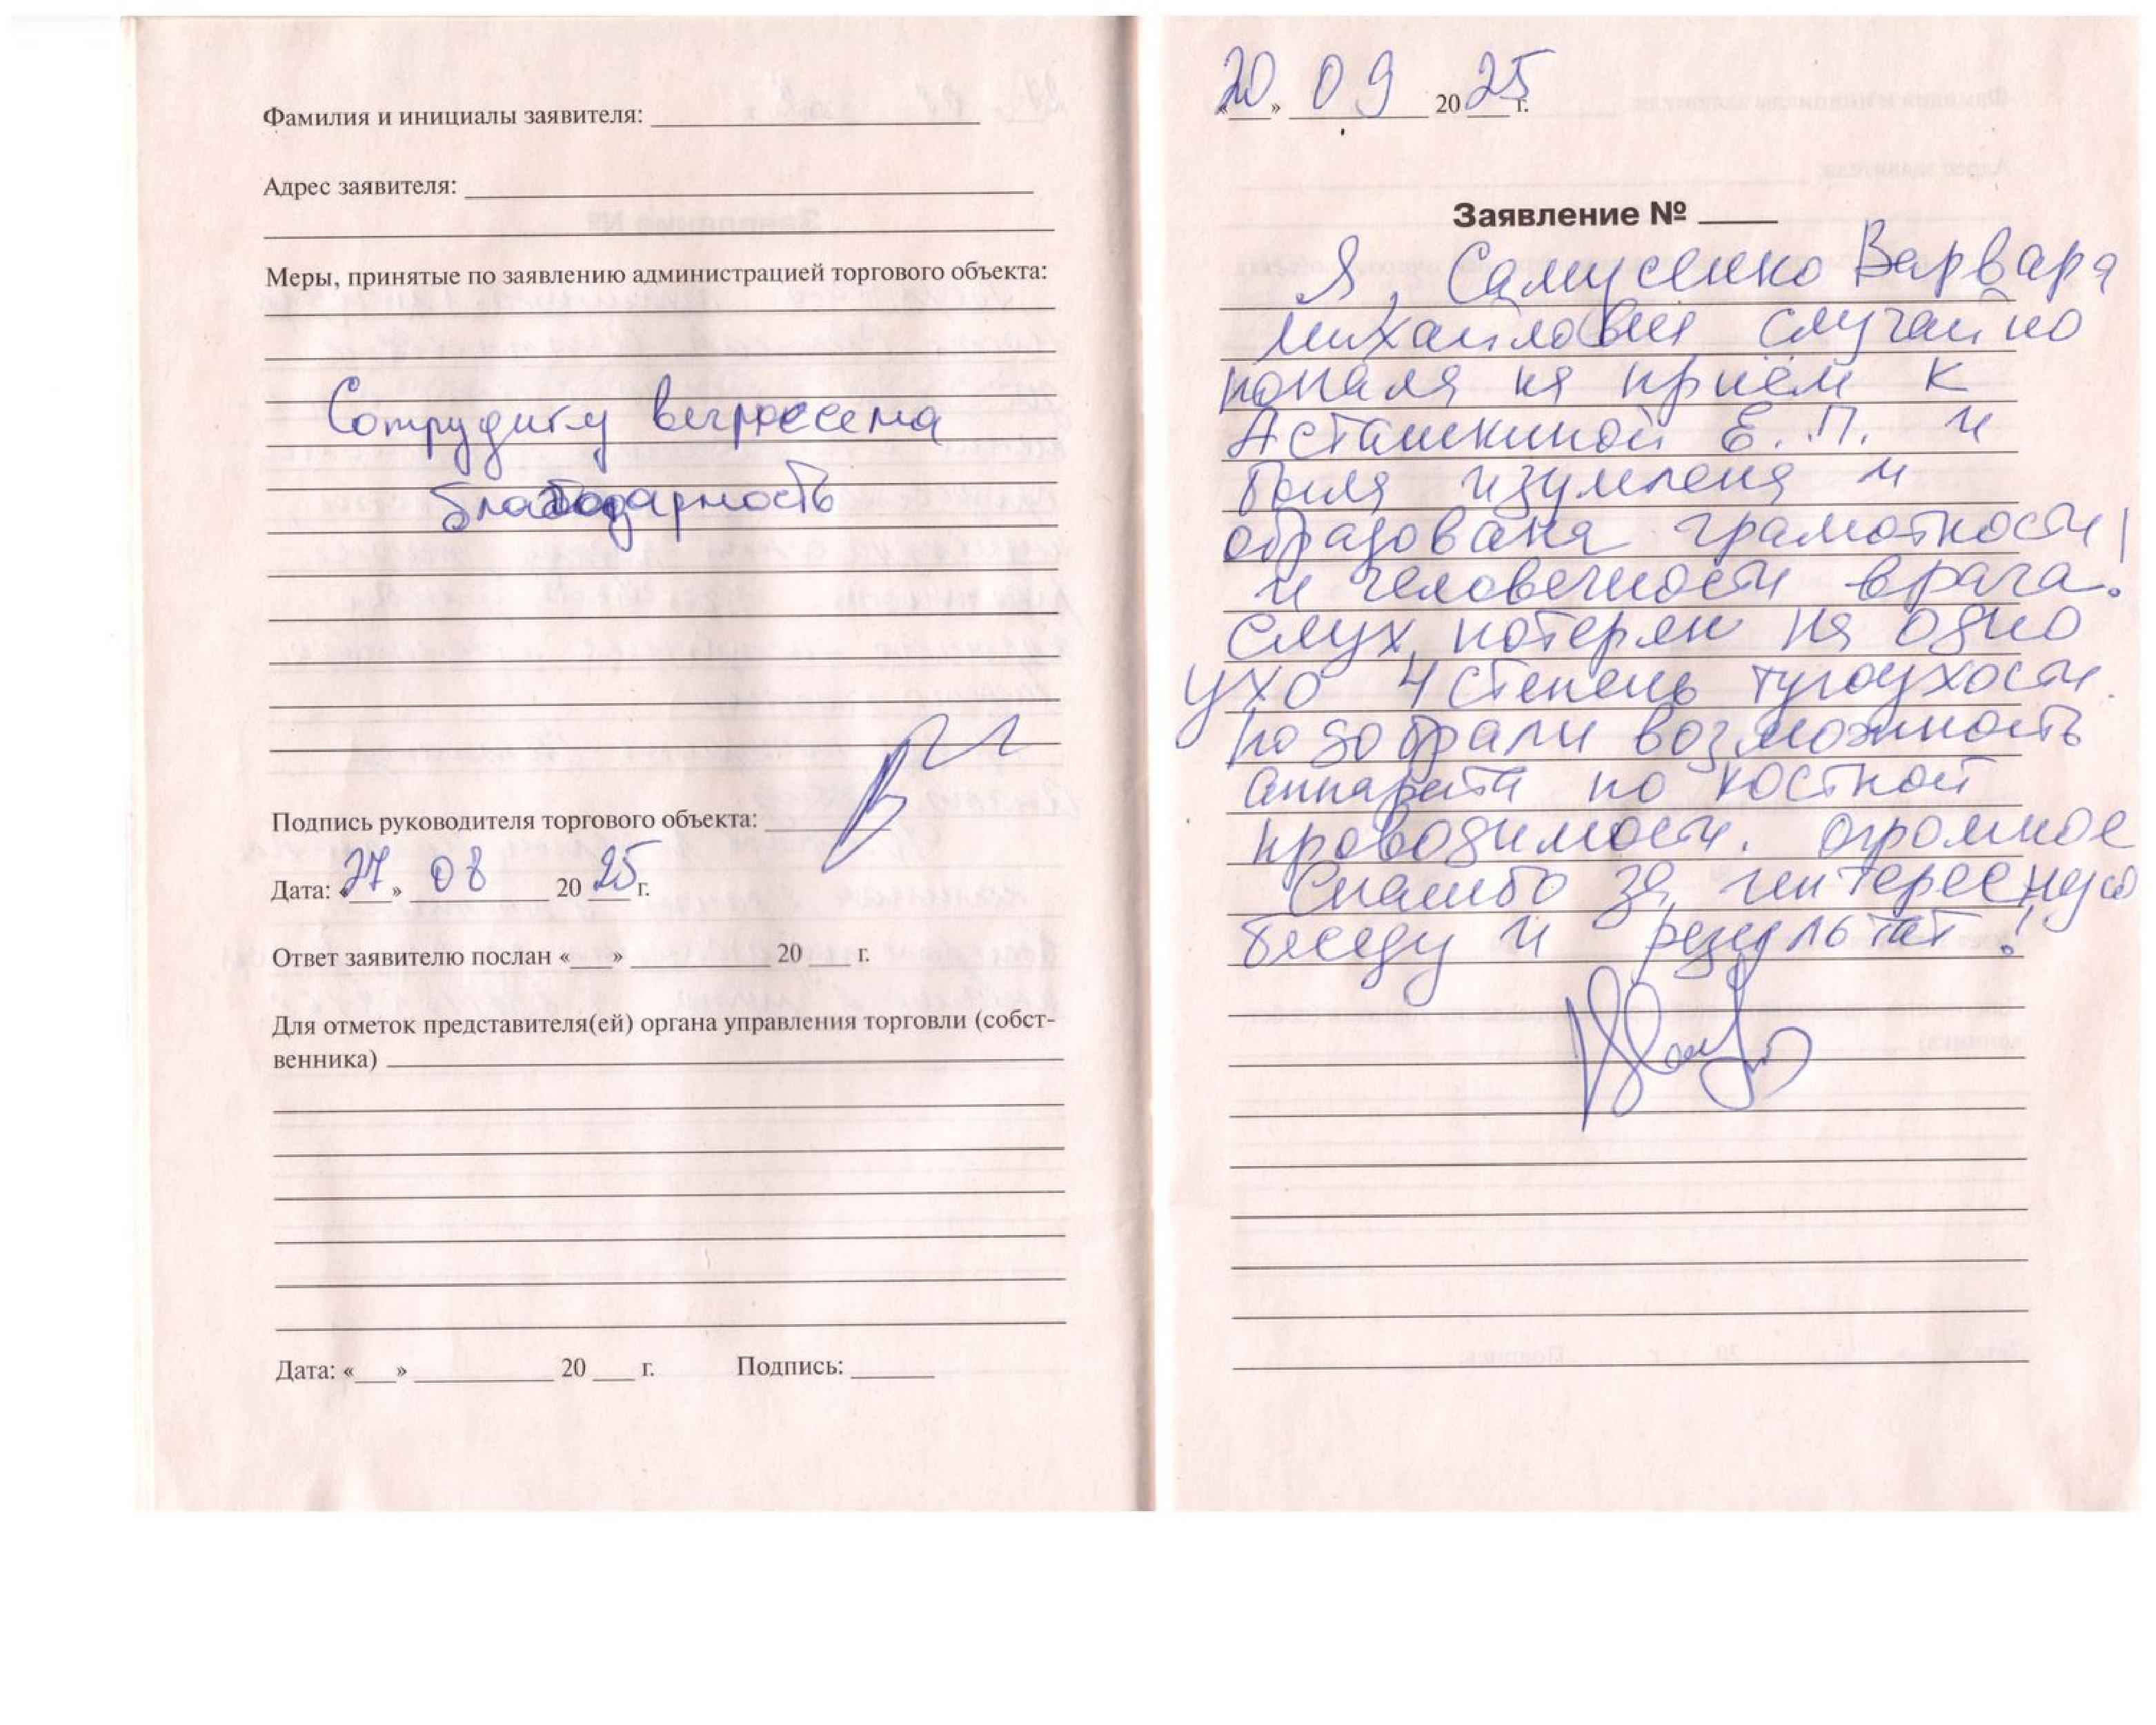 Фамилия и инициалы заявителя:
Адрес заявителя:
Меры, принятые по заявлению администрацией торгового объекта:
Сотруднику
благодарность
Подпись руководителя торгового объекта:
Дата: «27» 08 2025 г.
Ответ заявителю послан «___» 20 ___ г.
Для отметок представителя(ей) органа управления торговли (собст-
венника)
Дата: «___» 20 ___ г. Подпись:
«20» 09 2025 г.
Заявление №
Я, Самусенко Варвара
Михайловна случайно
попала на приём к
Асташкиной Е. П. и
была изумлена и
образована грамотности
и человечности врача!
Слух потерян на одно
ухо 4 степень тугоухости.
Подобрали возможность
аппарата по костной
проводимости. Огромное
Спасибо за интересную
беседу и результат!